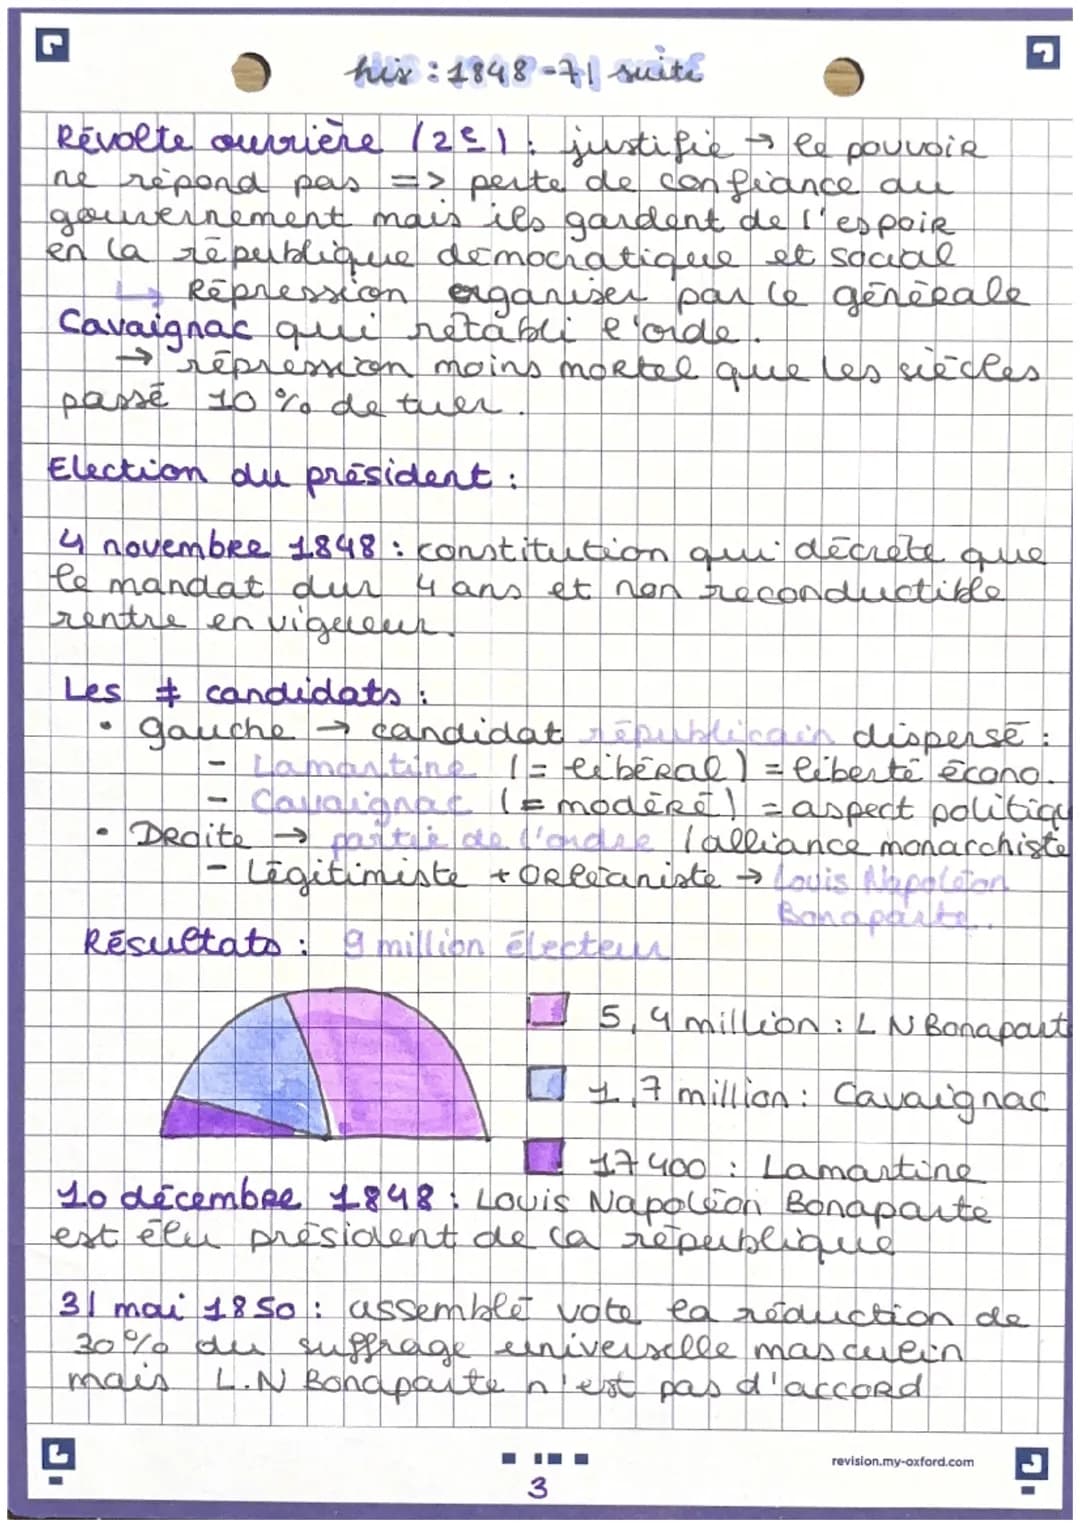 his : 1848-71 suite
Révolte ouvrière (2e) : justifie → le pouvoir
ne répond pas => perte de confiance au
gouvernement mais ils gardent de l'espoir
en la république démocratique et social
↳ Répression organiser par le générale
Cavaignac qui rétabli l'orde.
→ répression moins mortel que les siècles
passé 10 % de tuer.
Election du président :
4 novembre 1848 : constitution qui décrète que
le mandat dur 4 ans et non reconductible
rentre en vigueur.
Les ≠ candidats :
• gauche → candidat républicain dispersé :
- Lamartine (= libéral) = liberté écono.
- Cavaignac (= modéré) = aspect politiqu
• Droite → partie de l'ordre (alliance monarchiste
- Légitimiste + Orléaniste → Louis Napoléon
Bonaparte.
Résultats : 9 million électeur
5,4 million : L N Bonapart
1,7 million : Cavaignac
17400 : Lamartine
10 décembre 1848 : Louis Napoléon Bonaparte
est élu président de la république
31 mai 1850 : assemblé vote la réduction de
30% du suffrage universelle masculin
mais L.N Bonaparte n'est pas d'accord
revision.my-oxford.com
3